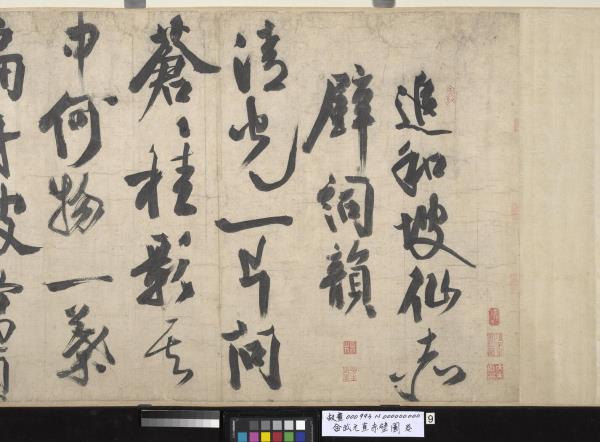 追和坡仙赤
壁詞韻
清光一片問
蒼〻桂影其
中何物一葉
扁舟波
故畫 000994 N 000000000
金武元直赤壁圖 卷
9